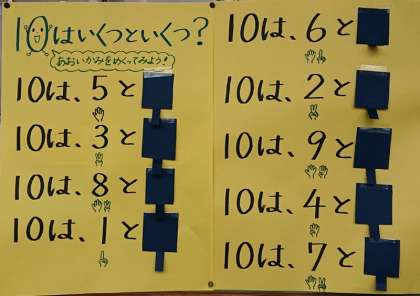 10はいくつといくつ?
あおいかみをめくってみよう!
10は、5と
10は、3と
10は、8と
10は、1と
10は、6と
10は、2と
10は、9と
10は、4と
10は、7と